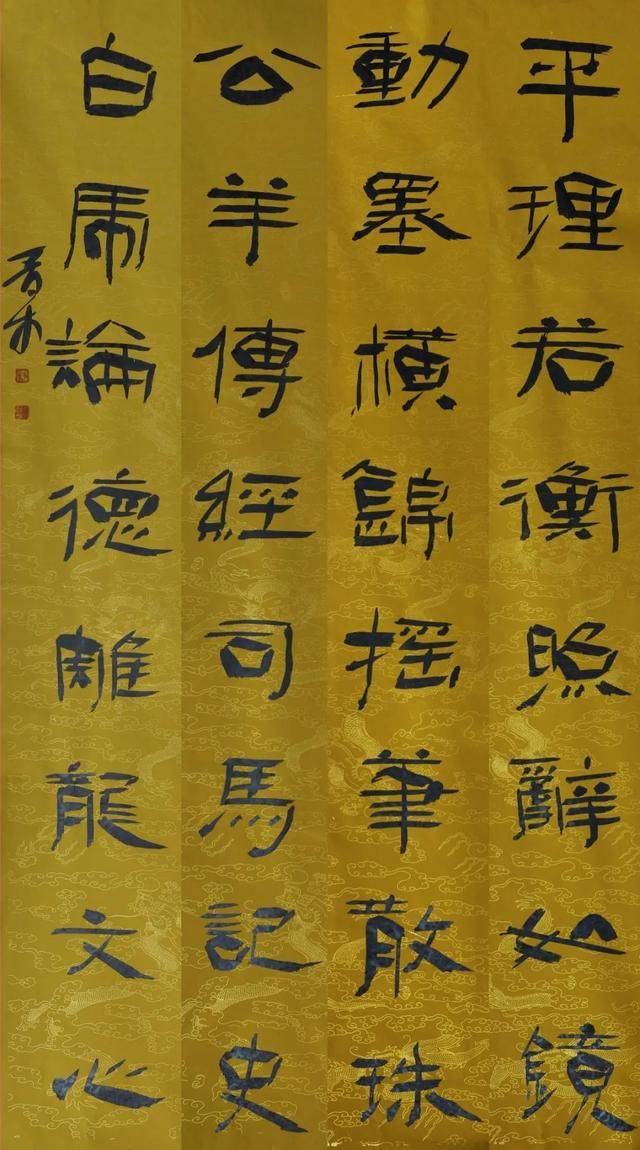 平理若衡照辭如鏡
動墨橫錦摇筆散珠
公羊傳經司馬記史
白虎論德雕龍文心